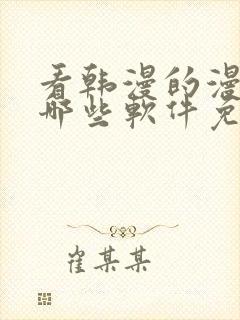 看韩漫的漫
哪些軟件免
崔某某